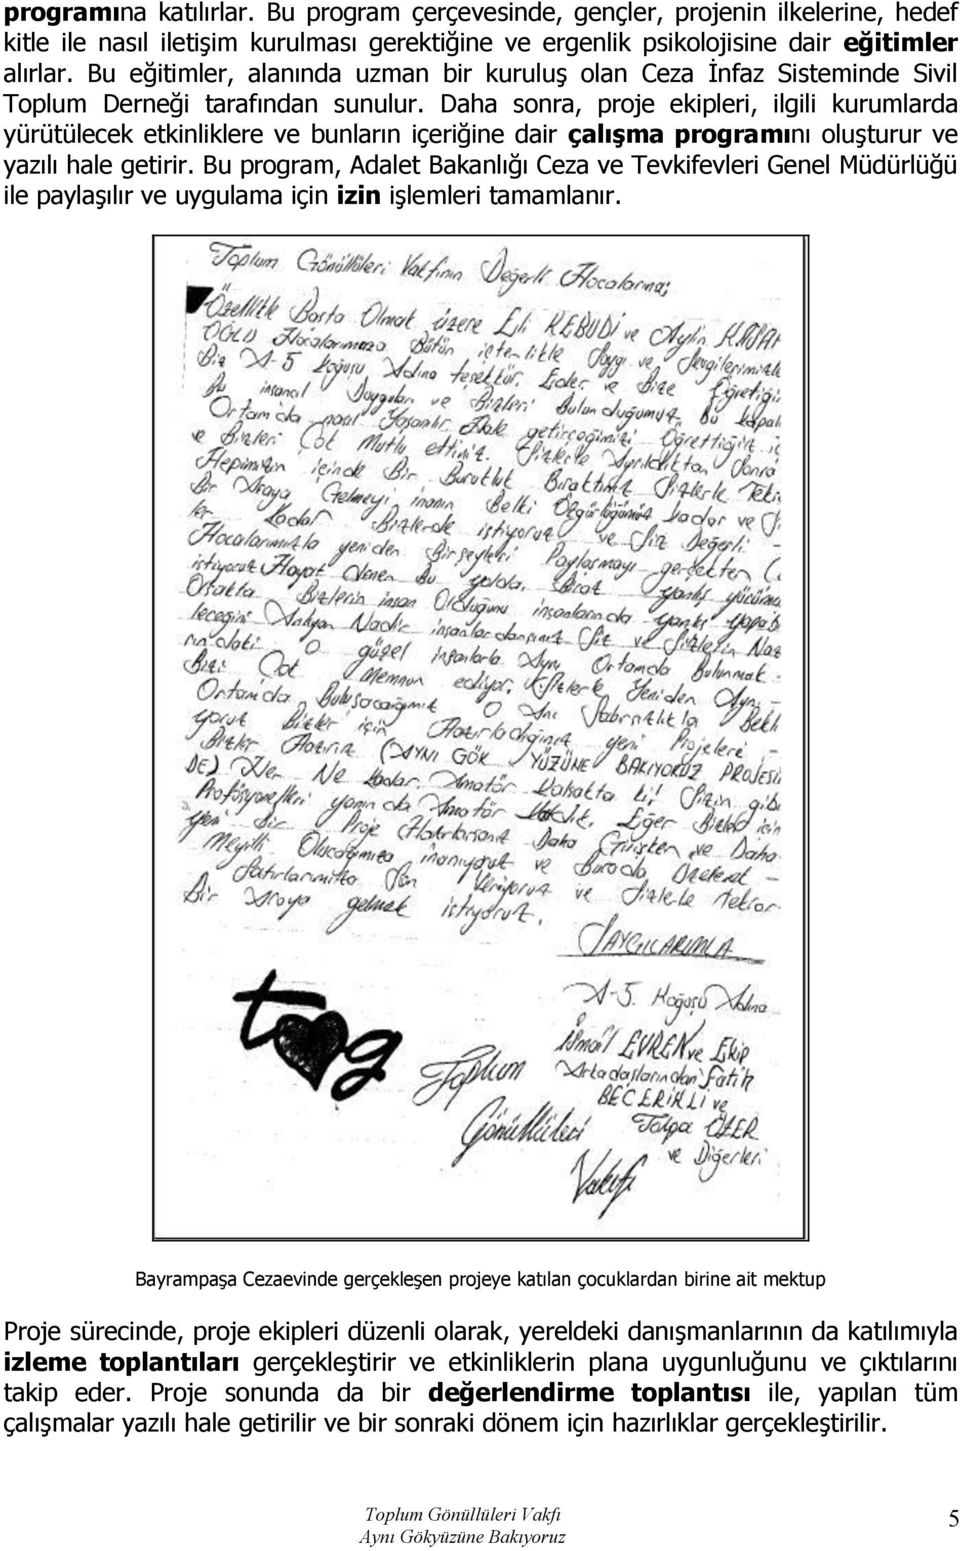 programına katılırlar. Bu program çerçevesinde, gençler, projenin ilkelerine, hedef
kitle ile nasıl iletişim kurulması gerektiğine ve ergenlik psikolojisine dair eğitimler
alırlar. Bu eğitimler, alanında uzman bir kuruluş olan Ceza İnfaz Sisteminde Sivil
Toplum Derneği tarafından sunulur. Daha sonra, proje ekipleri, ilgili kurumlarda
yürütülecek etkinliklere ve bunların içeriğine dair çalışma programını oluşturur ve
yazılı hale getirir. Bu program, Adalet Bakanlığı Ceza ve Tevkifevleri Genel Müdürlüğü
ile paylaşılır ve uygulama için izin işlemleri tamamlanır.
Toplum Gönüllüleri Vakfının Değerli Hocalarına;
Özellikle Başta Olmak üzere Eli KEBUDİ ve Aylin KASAP
OĞLU Hocalarımıza Bütün içtenlikle Saygı ve Sevgilerimizle
Biz A-5 Koğuşu Adına teşekkür Eder ve Bize Öğretiği
Bu insancıl Duyguları ve Bizleri Bulunduğumuz Bu kapalı
Ortamda nasıl Yaşanılır Hale getirçeğimizi Öğrettiğiniz iç
ve Bizleri Çok Mutlu ettiniz. Sizlerle Ayrıldıktan Sonra
Hepimizin içinde Bir Burukluk Bıraktınız Sizlerle Tekr
Bir Araya Gelmeyi inanın Belki Özgürlüğümüz kadar ve S
ler Kadar Bizlerde istiyoruz ve Siz Değerli -
Hocalarımızla yeniden Birşeyleri Paylaşmayı gerçekten
istiyoruz Hayat denen Bu yolda, Biraz yanlış yücüme
Osakta Bizlerin insan Olduğunu insanlarında yanlış yapabi
leceğini Anlıyan Nadir insanlardansınız Siz ve Sizlerin Naz
rındaki O güzel insanlarla Aynı Ortamda Bulunmak
Bizi Çok Memnun ediyor. Sizlerle Yeniden Aynı -
Ortamda Buluşacağımız O Anı Sabırsızlıkla Bekli
yoruz Bizler için Hazırladığınız yeni Projelere -
Bizler Hazırız (AYNI GÖK YÜZÜNE BAKIYORUZ PROJESİN
DE) Her Ne kadar Amatör Kalsakta ki! Sizin gibi
Profösyonelleri yanında Amatör kaldık. Eğer Bizler için
yeni bir Proje Hazırlarsanız Daha Girişken ve Daha
Meyilli Olacağımıza inanıyoruz ve Burada
Satırlarımıza Son Veriyoruz ve Sizlerle tekrar
Bir Araya gelmek istiyoruz.
SAYGILARIMLA
A-5. Koğuşu Adına
İsmail EVREN ve Ekip
Arkadaşlarından Fatih
BECERİKLİ ve
Tolga ÖZER
ve Diğerleri
tog
Toplum
Gönüllüleri
Vakıfı
Bayrampaşa Cezaevinde gerçekleşen projeye katılan çocuklardan birine ait mektup
Proje sürecinde, proje ekipleri düzenli olarak, yereldeki danışmanlarının da katılımıyla
izleme toplantıları gerçekleştirir ve etkinliklerin plana uygunluğunu ve çıktılarını
takip eder. Proje sonunda da bir değerlendirme toplantısı ile, yapılan tüm
çalışmalar yazılı hale getirilir ve bir sonraki dönem için hazırlıklar gerçekleştirilir.
Toplum Gönüllüleri Vakfı
Aynı Gökyüzüne Bakıyoruz
5